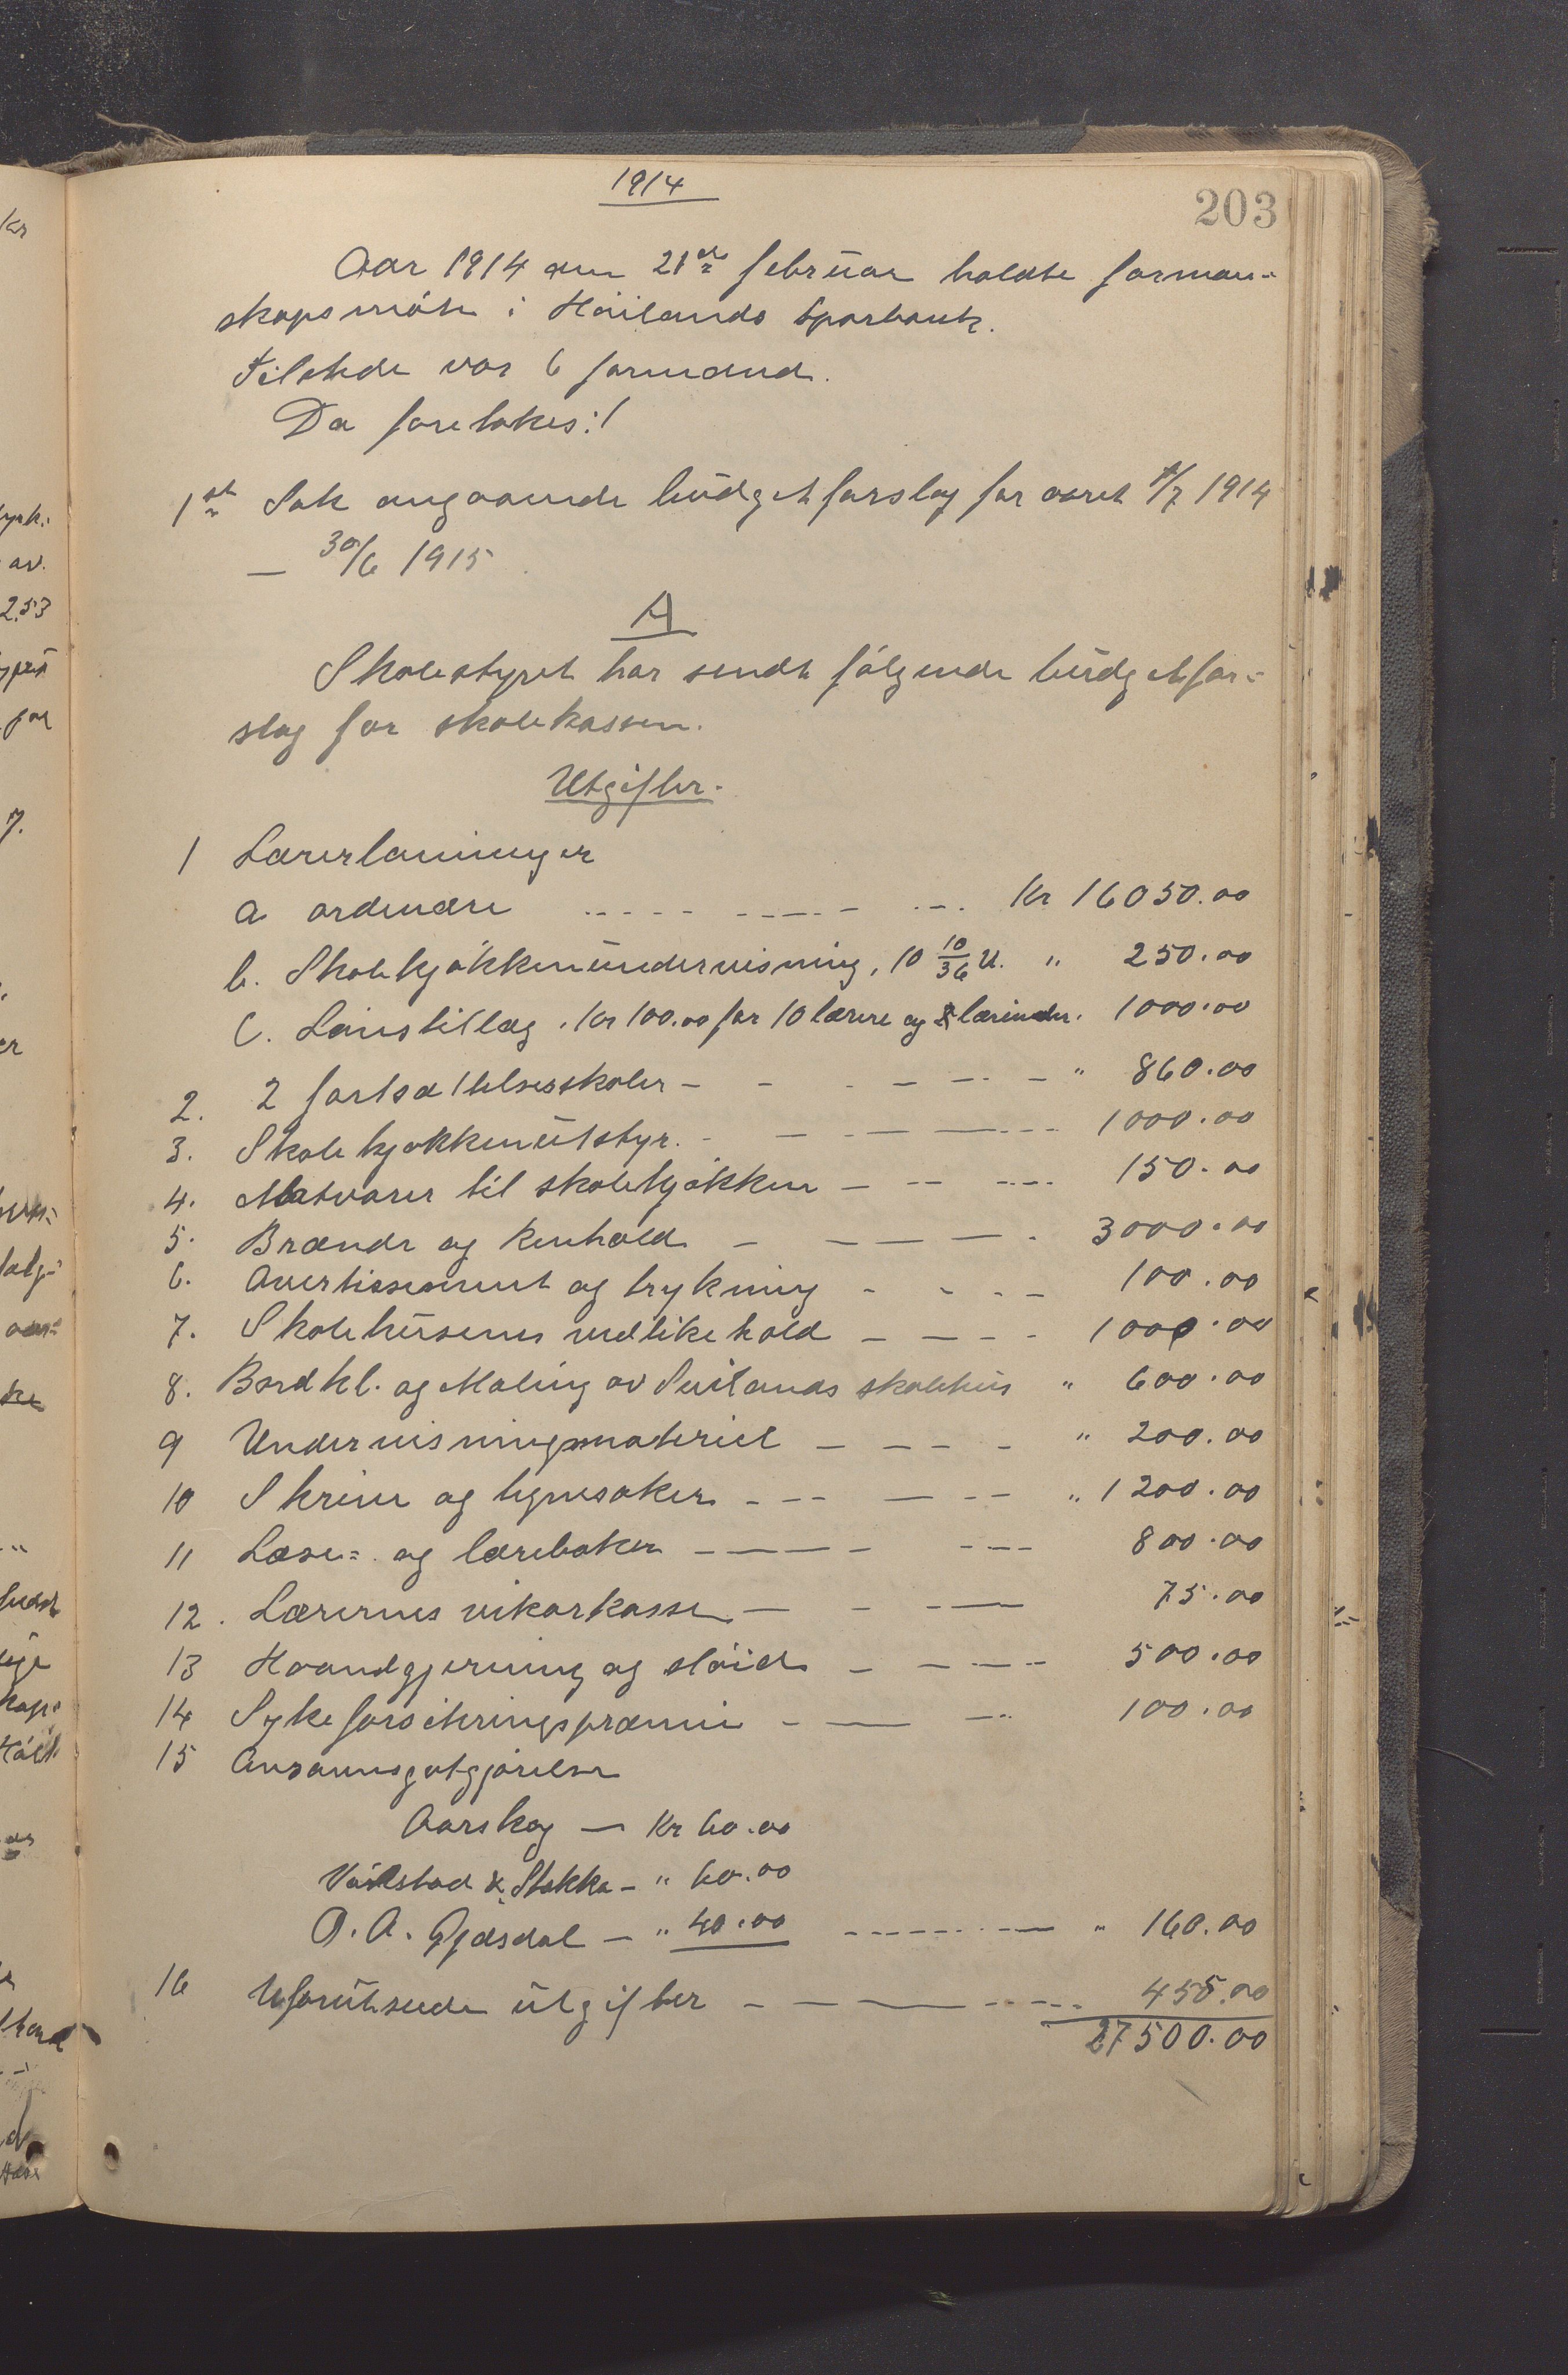 1914
203
Aar 1914 den 21de februar holdte forman-
skapsmöte i Höilands Sparbank.
Tilstede var 6 formænd.
Da foretokes:/
1st Sak angaaende budgetforslag for aaret 1/7 1914
— 30/6 1915
A
Skolestyret har sendt fölgende budgetfor-
slag for skolekassen.
Utgifter.
1 Lærerlönninger
a ordenære Kr 16050.00
b. Skolekjökkenundervisning, 10 10/36 U. " 250.00
c. Lönstillæg. Kr 100.00 for 10 lærere og lærinder. 1000.00
2. 2 fortsættelsesskoler - " 860.00
3. Skolekjökkenutstyr. 1000.00
4. Matvarer til skolekjökken 150.00
5. Brænde og renhold 3000.00
6. Avertissement og trykning 100.00
7. Skolehusenes vedlikehold 1000.00
8. Bordkl. og Maling av skolehus " 600.00
9 Undervisningsmateriel " 200.00
10 Skrive og tegnesaker " 1200.00
11 Læse= og lærebøker 800.00
12. Lærernes vikarkasse 75.00
13 Haandgjerning og slöid 500.00
14 Sykeforsikringspræmie 100.00
15 Ansvarsgodtgjörelse
Aarskog — Kr 60.00
& Stokka - " 60.00
O. A. Gjdsdal — " 40.00 " 160.00
16 Uforutseede utgifter 455.00
27500.00